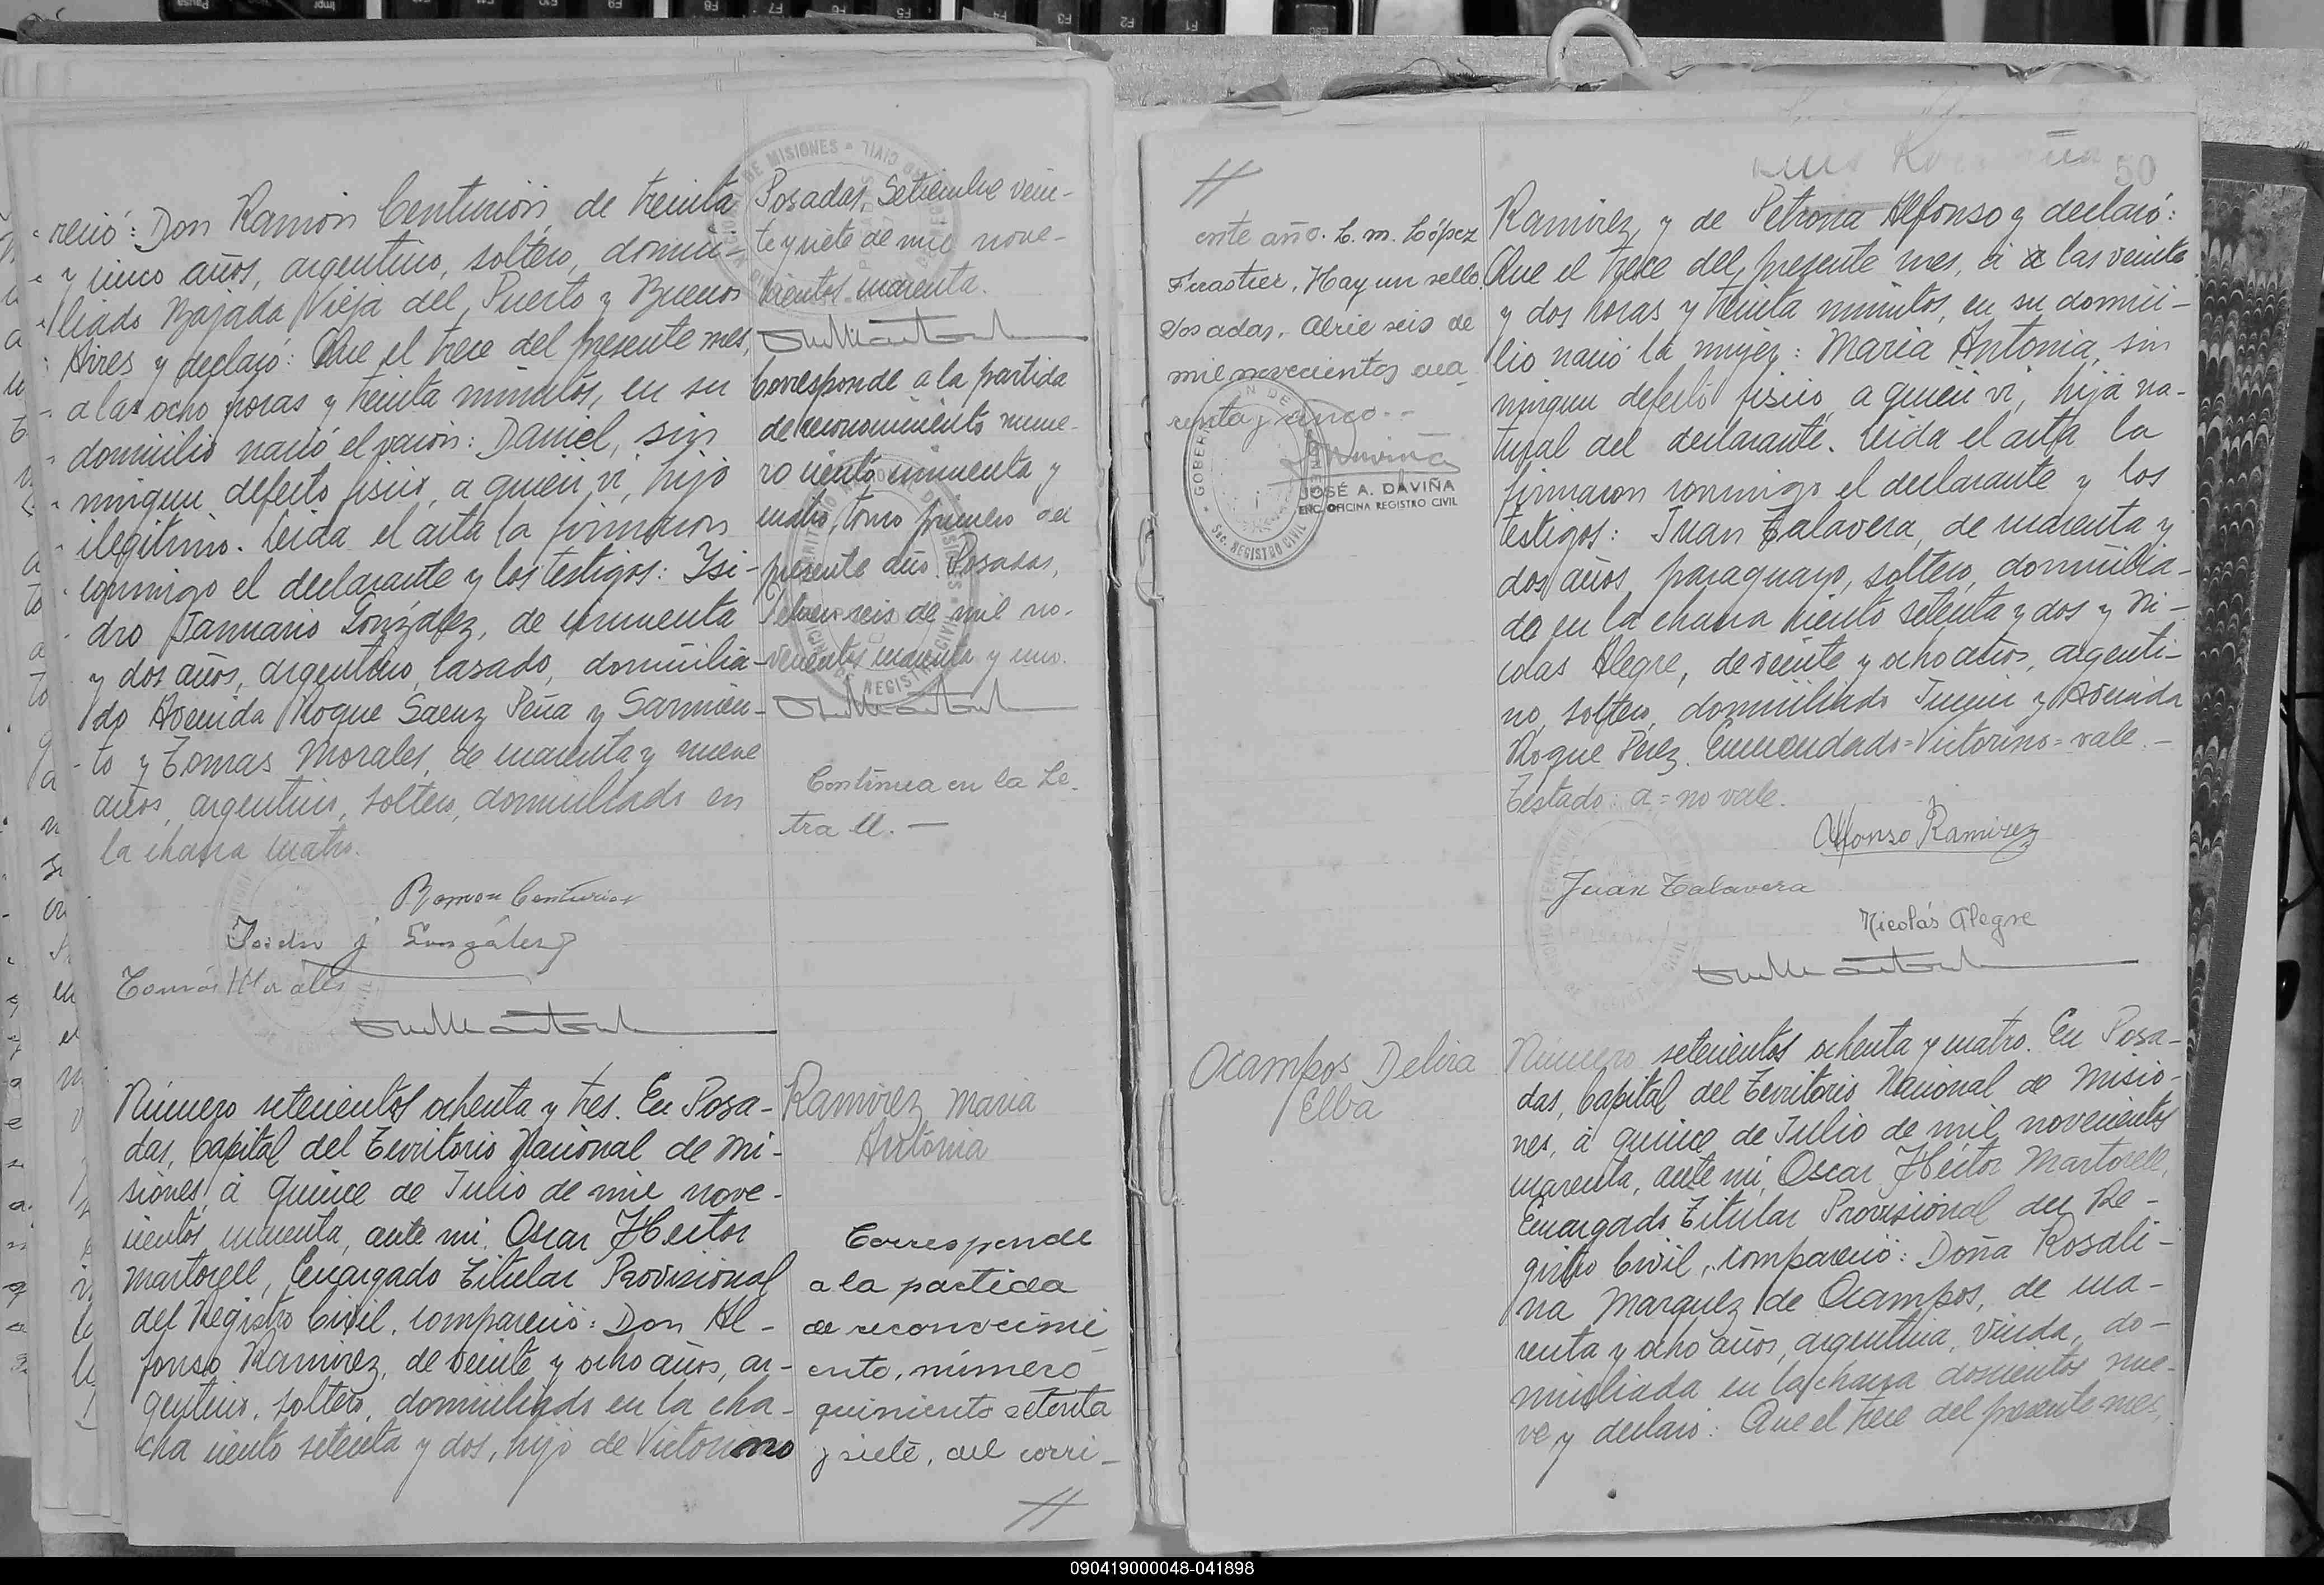 reció: Don Ramón Centurión, de treinta
y cinco años, argentino, soltero, domici-
liado Bajada Vieja del Puerto y Buenos
Aires y declaró: Que el trece del presente mes,
a las ocho horas y treinta minutos, en su
domicilio nació el varón: Daniel, sin
ningun defecto fisico, a quien vi, hijo
ilegítimo. Leida el acta la firmaron
conmigo el declarante y los testigos: Isi-
dro Januario González, de cincuenta
y dos años, argentino, casado, domicilia-
do Avenida Roque Saenz Peña y Sarmien-
to y Tomas Morales, de cuarenta y nueve
años, argentino, soltero, domiciliado en
la chacra cuatro.
Ramon Centurion
Isidro J González
Tomás Morales
Posadas, Setiembre vein-
te y siete de mil nove-
cientos cuarenta.
Corresponde a la partida
de reconocimiento núme-
ro ciento cincuenta y
cuatro, tomo primero del
presente año. Posadas,
Febrero seis de mil no-
vecientos cuarenta y uno.
Continua en la Le-
tra M. —
Número setecientos ochenta y tres. En Posa-
das, Capital del Territorio Nacional de Mi-
siones, á quince de Julio de mil nove-
cientos cuarenta, ante mi, Oscar Héctor
Martorell, Encargado Titular Provisional
del Registro Civil, compareció: Don Al-
fonso Ramirez, de veinte y ocho años, ar-
gentino, soltero, domiciliado en la cha-
cra ciento setenta y dos, hijo de Victorino
Ramirez Maria
Antonia
Corresponde
a la partida
de reconocimi
ento, número
quiniento setenta
y siete, del corri-
//
//
ente año. C. M. López
Forastier. Hay un sello.
Posadas, Abril seis de
mil novecientos cua-
renta y cinco.-
JOSÉ A. DAVIÑA
ENC. OFICINA REGISTRO CIVIL
50
Ramirez, y de Petrona Alfonso y declaró:
Que el trece del presente mes, á a las veinte
y dos horas y treinta minutos, en su domici-
lio nació la mujer: Maria Antonia, sin
ningun defecto fisico, a quien vi, hija na-
tural del declarante. Leida el acta la
firmaron conmigo el declarante y los
testigos: Juan Talavera, de cuarenta y
dos años, paraguayo, soltero, domicilia-
do en la chacra ciento setenta y dos y Ni-
colas Alegre, de veinte y ocho años, argenti-
no, soltero, domiciliado Junin y Avenida
Roque Perez. Enmendado=Victorino=vale.-
Testado: a=no vale.
Alfonso Ramirez
Juan Talavera
Nicolás Alegre
Ocampos Delira
Elba
Número setecientos ochenta y cuatro. En Posa-
das, Capital del Territorio Nacional de Misio-
nes, á quince de Julio de mil novecientos
cuarenta, ante mi, Oscar Héctor Martorell,
Encargado Titular Provisional del Re-
gistro Civil, compareció: Doña Rosali-
na Marquez de Ocampos, de cua-
renta y ocho años, argentina, viuda, do-
miciliada en la chacra doscientos nue-
ve, y declaró: Que el trece del presente mes,
090419000048-041898